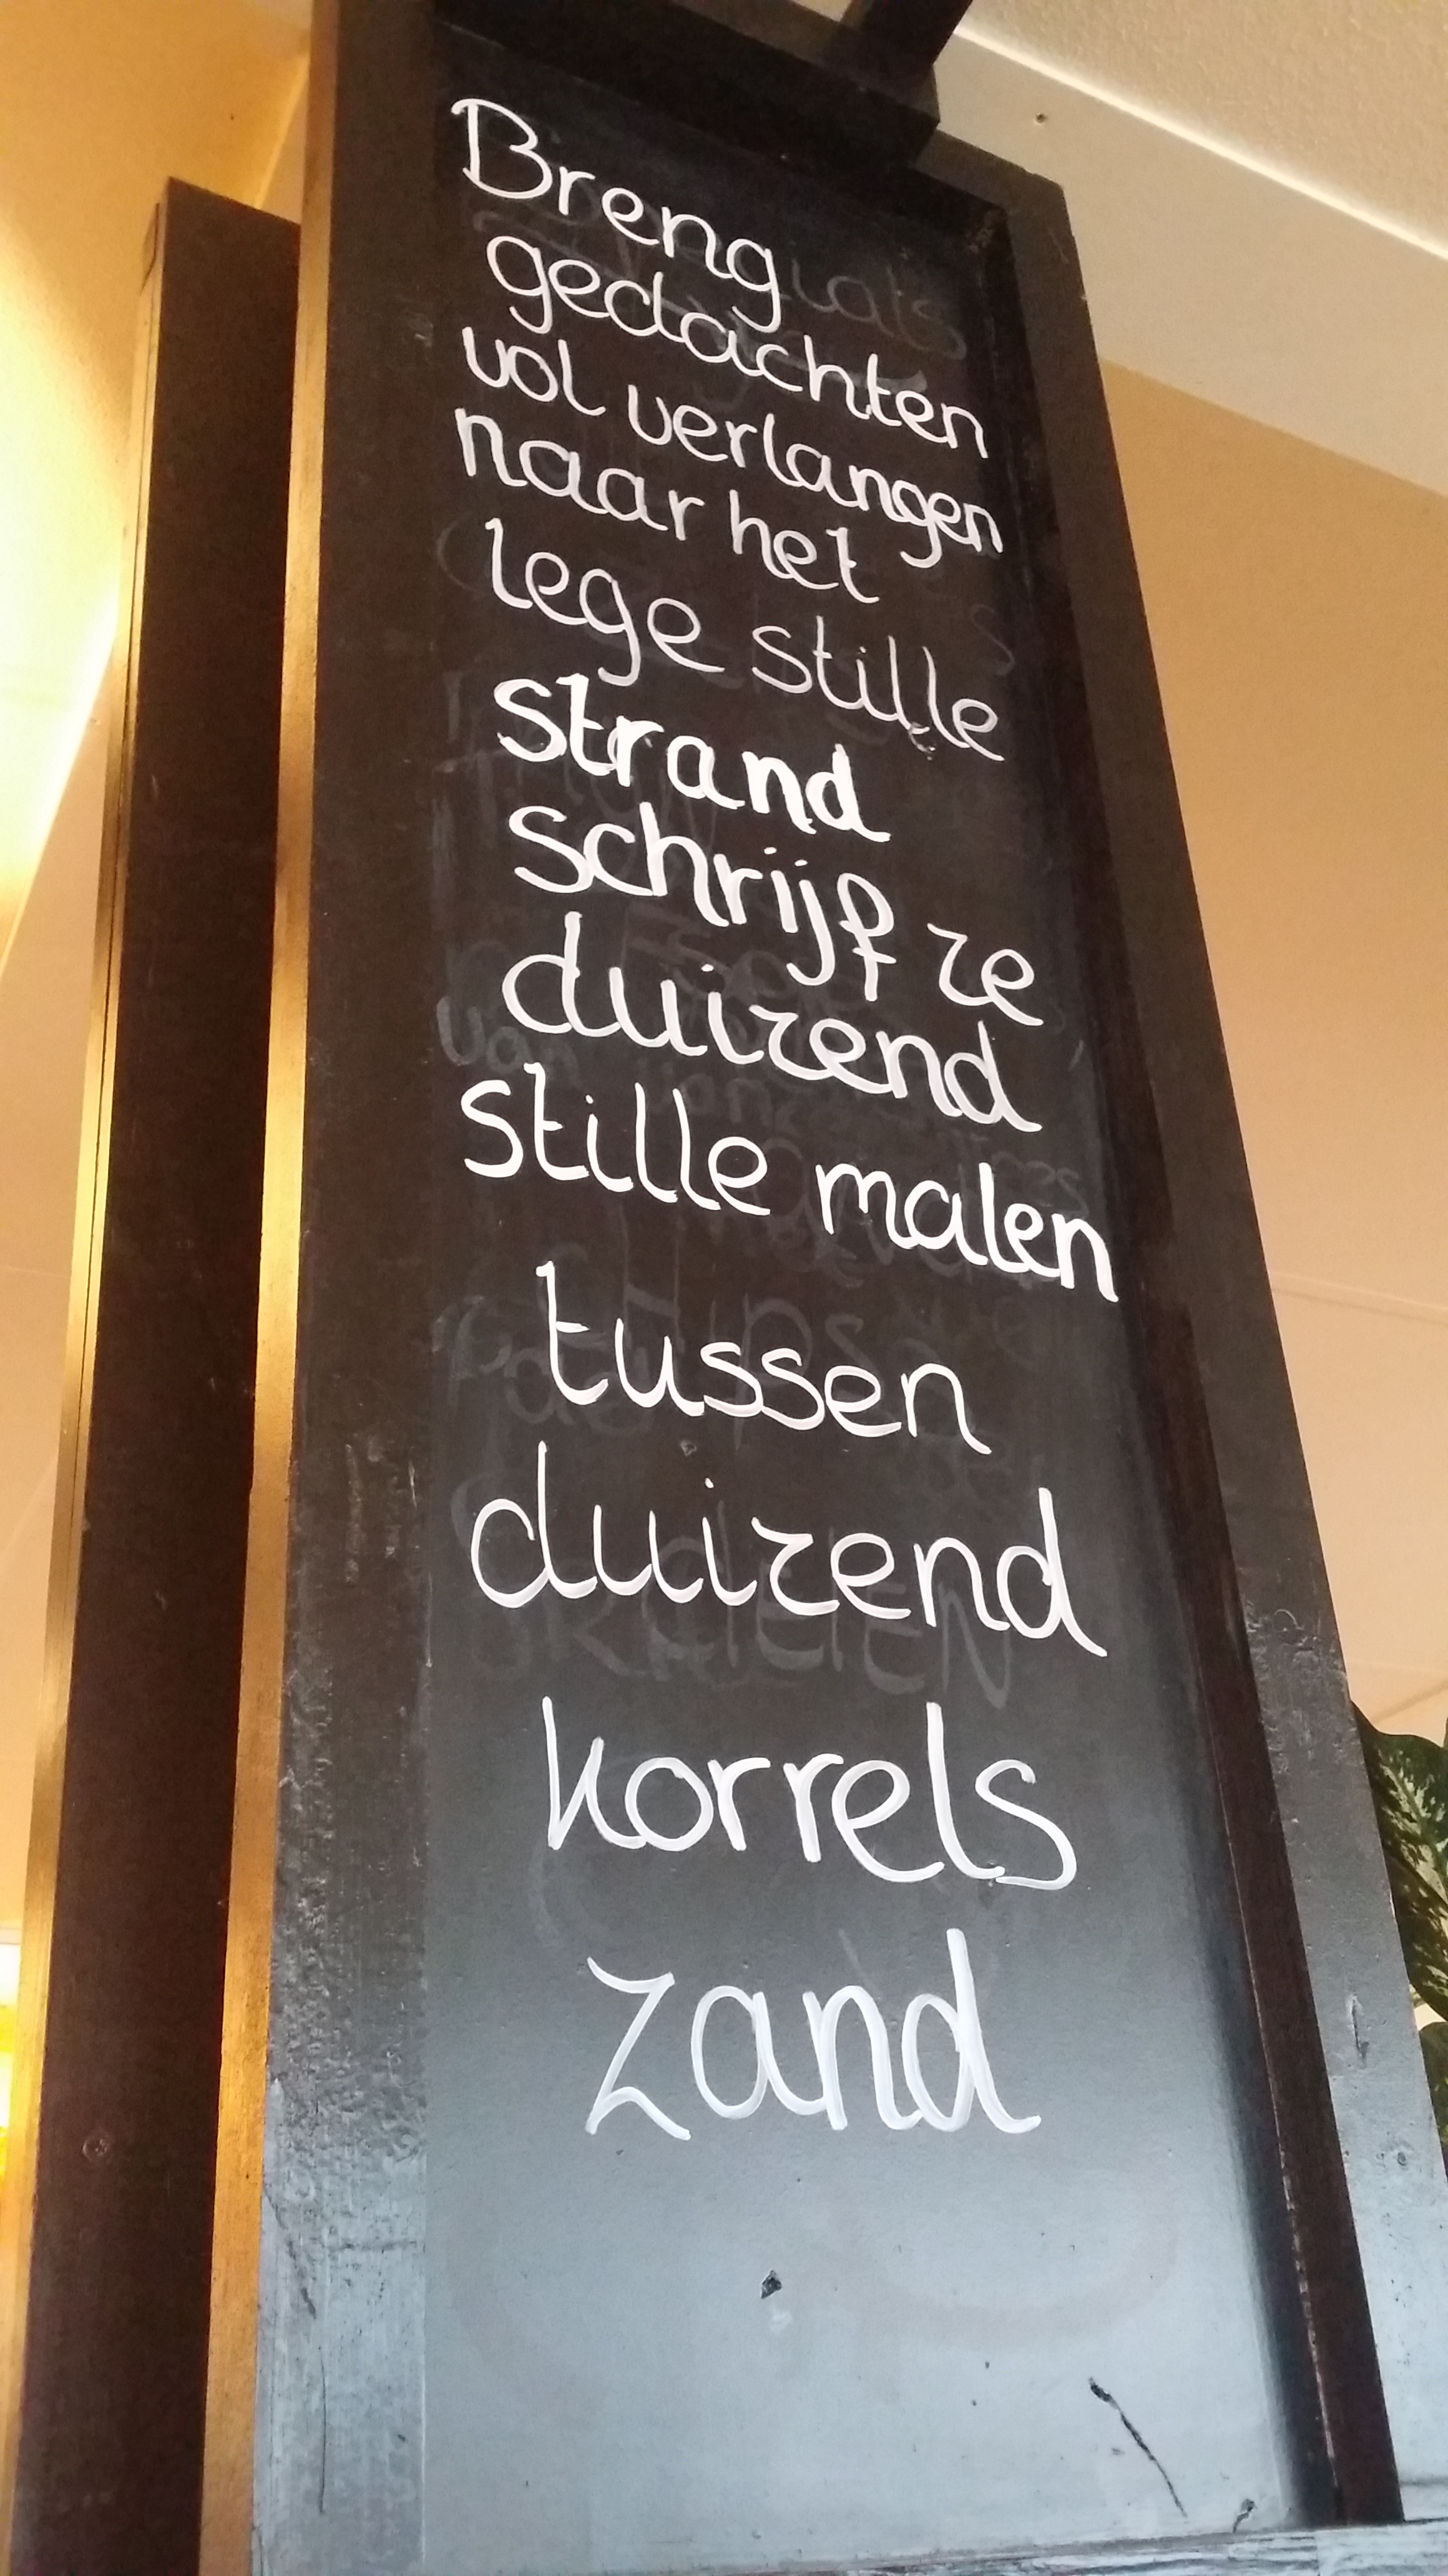 Breng
gedachten
vol verlangen
naar het
lege stille
strand
schrijf ze
duizend
stille malen
tussen
duizend
korrels
zand